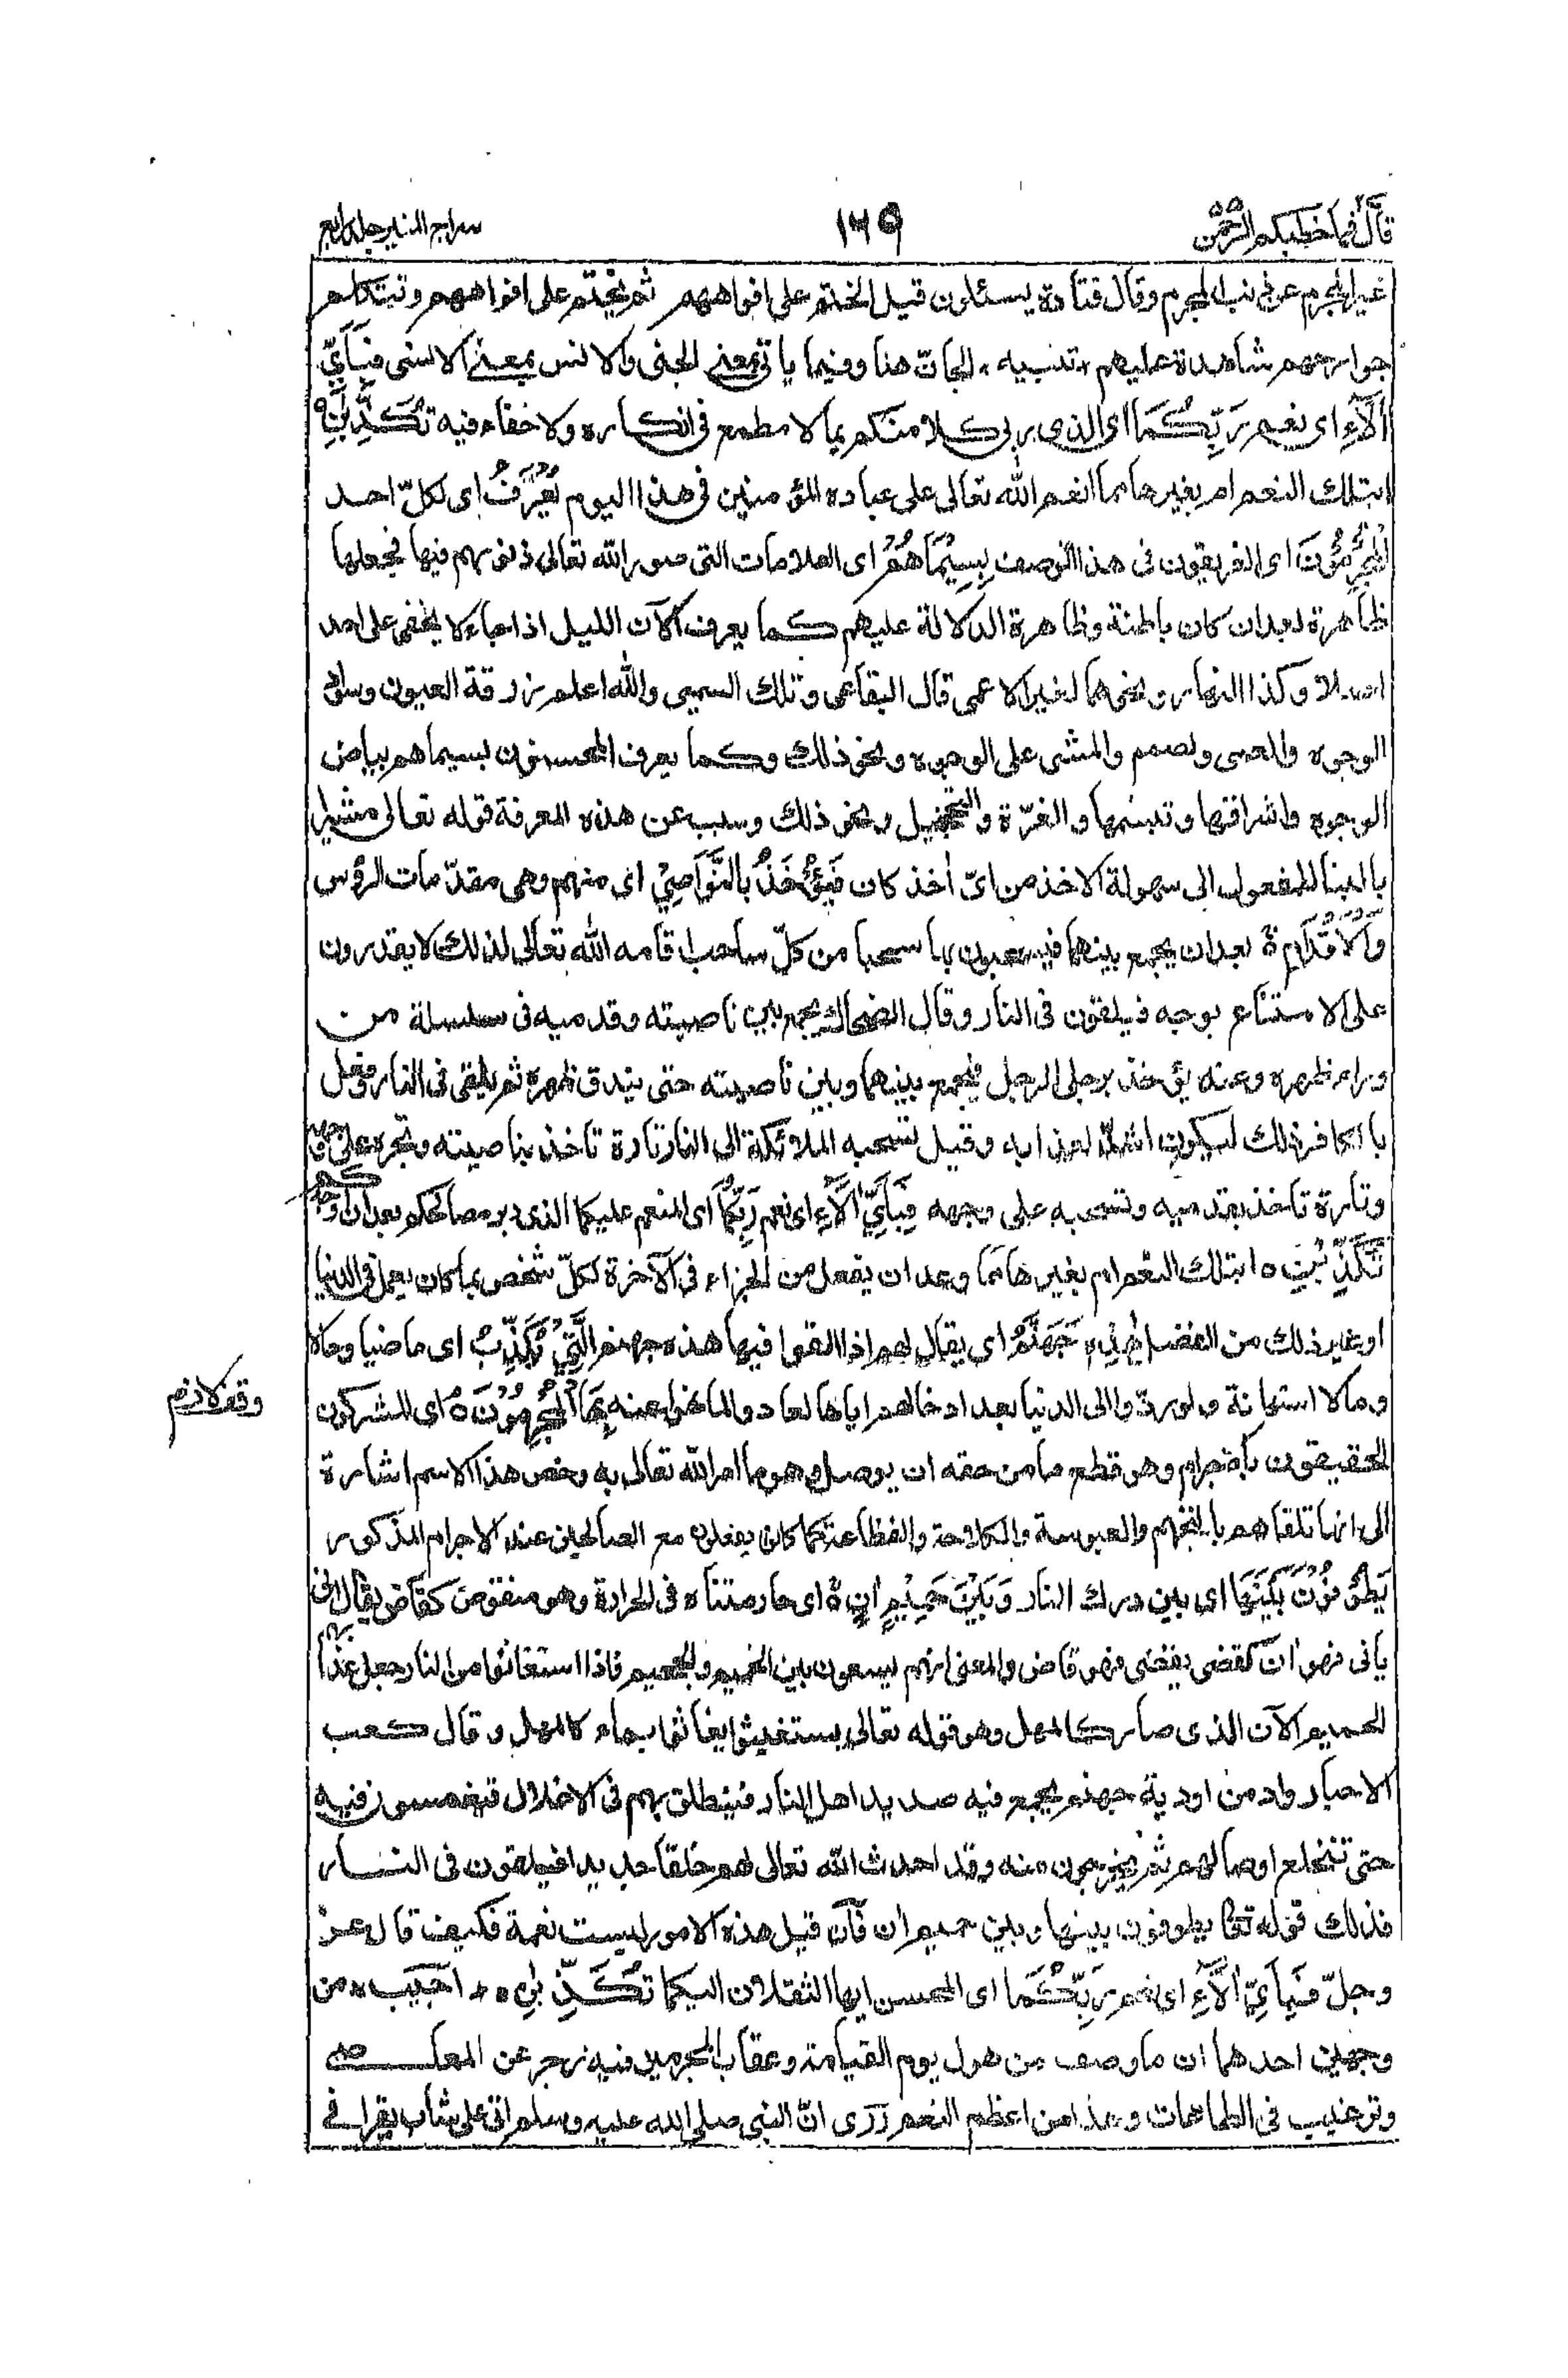 قال فما خطبكم الرحمٰن
١٦٩
سراج المنير جلد رابع
غير المجرم عن ذنب المجرم وقال قتادة يسئلون قبل الختم على افواههم ثم يختم على افواههم وتتكلم
جوارحهم شاهدة عليهم تنبيه الجانّ هنا وفيما ياتى بمعنى الجنى والانس بمعنى الانسى فَبِاَيِّ
اٰلَآءِ اى نعم رَبِّكُمَا اى الذى ربى كلا منكم بما لا مطمع فى انكاره ولا خفاء فيه تُكَذِّبٰنِ
ابتلك النعم ام بغيرها مما انعم الله تعالى على عباده المؤمنين فى هذا اليوم يُعْرَفُ اى لكلّ احد
الْمُجْرِمُوْنَ اى العريقون فى هذا الوصف بِسِيْمَاهُمْ اى العلامات التى صور الله تعالى ذنوبهم فيها فجعلها
ظاهرة بعد ان كان باطنة وظاهرة الدلالة عليهم كما يعرف الآن الليل اذا جاء لا يخفى على احد
اصلا وكذا النهار ونحوهما لغير الاعمى قال البقاعى وتلك السيمى والله اعلم زرقة العيون وسواد
الوجوه والعمى والصمم والمشى على الوجوه ونحو ذلك وكما يعرف المحسنون بسيماهم بياض
الوجوه واشراقها وتبسمها والغرّة والتحجيل ونحو ذلك وسبب عن هذه المعرفة قوله تعالى مشيرا
بالبناء للمفعول الى سهولة الاخذ من اىّ اٰخذ كان فَيُؤْخَذُ بِالنَّوَاصِيْ اى منهم وهى مقدّمات الرؤس
وَالْاَقْدَامِ بعد ان يجمع بينهما فيسحبون بها سحبا من كلّ ساحب اقامه الله تعالى لذلك لا يقدرون
على الامتناع بوجه فيلقون فى النار وقال الضحاك يجمع بين ناصيته وقدميه فى سلسلة من
وراء ظهره وعنه يؤخذ برجلى الرجل فيجمع بينهما وبين ناصيته حتى يندق ظهره ثم يلقى فى النار وفعل
بالكافر ذلك ليكون اشدّ لعذابه وقيل تسحبه الملائكة الى النار تارة تاخذ بناصيته وتجره على وجهه
وتارة تاخذ بقدميه وتسحبه على وجهه فَبِاَيِّ اٰلَآءِ اى نعم رَبِّكُمَا اى المنعم عليكما الذى دبر مصالحكم بعد ان اوجدكم
تُكَذِّبٰنِ ابتلك النعم ام بغيرها مما وعد ان يفعل من الجزاء فى الآخرة لكلّ شخص بما كان يعمل فى الدنيا
او غير ذلك من الفضل هٰذِهٖ جَهَنَّمُ اى يقال لهم اذا القوا فيها هذه جهنم الَّتِيْ يُكَذِّبُ اى ماضيا وحالا
ومآلا استهانة ولو ردّوا الى الدنيا بعد ادخالهم اياها لعادوا لما نهوا عنه بِهَا الْمُجْرِمُوْنَ اى المشركون
وقف لازم
الحقيقون بالاجرام وهو قطع ما من حقه ان يوصل وهو ما امر الله تعالى به وخص هذا الاسم اشارة
الى انها تلقاهم بالتجهم والعبوسة والكلاحة والفظاعة كما كان يفعلون مع الصالحين عند الاجرام المذكور
يَطُوْفُوْنَ بَيْنَهَا اى بين درك النار وَبَيْنَ حَمِيْمٍ اٰنٍ اى حار متناه فى الحرارة وهو منقوص كقاض يقال انى
يانى فهو اٰن كقضى يقضى فهو قاض والمعنى انهم يسعون بين الحميم والجحيم فاذا استغاثوا من النار جعل عذابهم
الحميم الآن الذى صار كالمهل وهو قوله تعالى يستغيثوا يغاثوا بماء كالمهل وقال كعب
الاحبار واد من اودية جهنم يجمع فيه صديد اهل النار فينطلق بهم فى الاغلال فيغمسون فيه
حتى تنخلع اوصالهم ثم يخرجون منه وقد احدث الله تعالى لهم خلقا جديدا فيلقون فى النار
فذلك قوله تعالى يطوفون بينها وبين حميم اٰن فان قيل هذه الامور ليست نعمة فكيف قال عزّ
وجلّ فَبِاَيِّ اٰلَآءِ اى نعم رَبِّكُمَا اى المحسن ايها الثقلان اليكما تُكَذِّبٰنِ اجيب من
وجهين احدهما ان ما وصف من هول يوم القيامة وعقاب المجرمين فيه زجر عن المعاصى
وترغيب فى الطاعات وهذا من اعظم النعم روى انّ النبى صلى الله عليه وسلم اتى على شاب يقرا فى